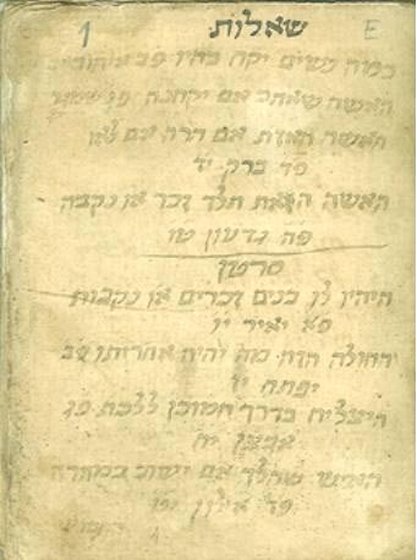 1 שאלות E
כמה נשים יקח
האשה שאתה אם יקחנה
האשה הזאת אם הרה אם לאו
פד ברק יד
האשה הזאת תלד זכר או נקבה
פה גדעון טו
סרטן
היהיו לו בנים זכרים או נקבות
פא יאיר יו
החולה הזה מה יהיה אחריתו פב
יפתח יז
היצליח בדרך המוכן ללכת פג
אבצן יח
האיש שהלך אם ישוב במהרה
פד אילון יט